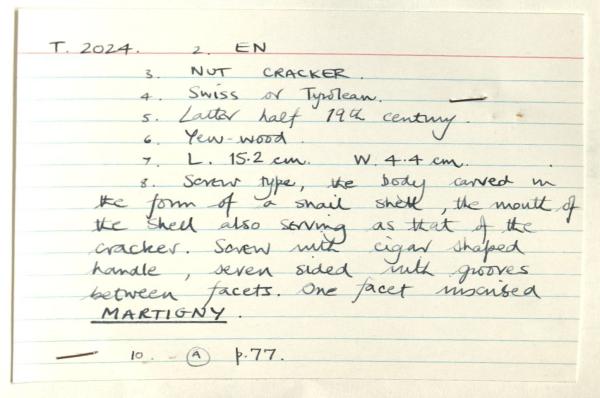 T. 2024. 2. EN
3. NUT CRACKER.
4. Swiss or Tyrolean.
5. Latter half 19th century.
6. Yew-wood.
7. L. 15.2 cm. W. 4.4 cm.
8. Screw type, the body carved in
the form of a snail shell, the mouth of
the shell also serving as that of the
cracker. Screw with cigar shaped
handle, seven sided with grooves
between facets. One facet inscribed
MARTIGNY.
10. A p.77.